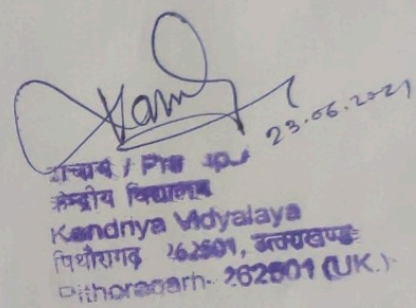 23.06.2021
प्राचार्य /
केन्द्रीय विद्यालय
Kendriya Vidyalaya
पिथौरागढ़ 262501, उत्तराखण्ड
Pithoragarh- 262501 (UK.)